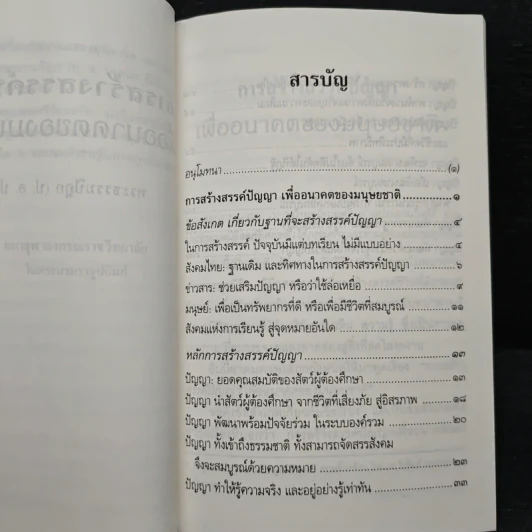 สารบัญ
อนุโมทนา ................................................................ (๑)
การสร้างสรรค์ปัญญา เพื่ออนาคตของมนุษยชาติ ............... ๑
ข้อสังเกต เกี่ยวกับฐานที่จะสร้างสรรค์ปัญญา .................. ๔
ในการสร้างสรรค์ ปัจจุบันมีแต่บทเรียน ไม่มีแบบอย่าง ........ ๔
สังคมไทย: ฐานเดิม และทิศทางในการสร้างสรรค์ปัญญา ........ ๖
ข่าวสาร: ช่วยเสริมปัญญา หรือว่าใช้ล่อเหยื่อ .................. ๙
มนุษย์: เพื่อเป็นทรัพยากรที่ดี หรือเพื่อมีชีวิตที่สมบูรณ์ ....... ๑๑
สังคมแห่งการเรียนรู้ สู่จุดหมายอันใด ........................ ๑๒
หลักการสร้างสรรค์ปัญญา ................................... ๑๓
ปัญญา: ยอดคุณสมบัติของสัตว์ผู้ต้องศึกษา .................. ๑๓
ปัญญา นำสัตว์ผู้ต้องศึกษา จากชีวิตที่เสี่ยงภัย สู่อิสรภาพ ..... ๑๘
ปัญญา พัฒนาพร้อมปัจจัยร่วม ในระบบองค์รวม ............... ๒๐
ปัญญา ทั้งเข้าถึงธรรมชาติ ทั้งสามารถจัดสรรสังคม
จึงจะสมบูรณ์ด้วยความหมาย ............................... ๒๓
ปัญญา ทำให้รู้ความจริง และอยู่อย่างรู้เท่าทัน ................ ๓๓